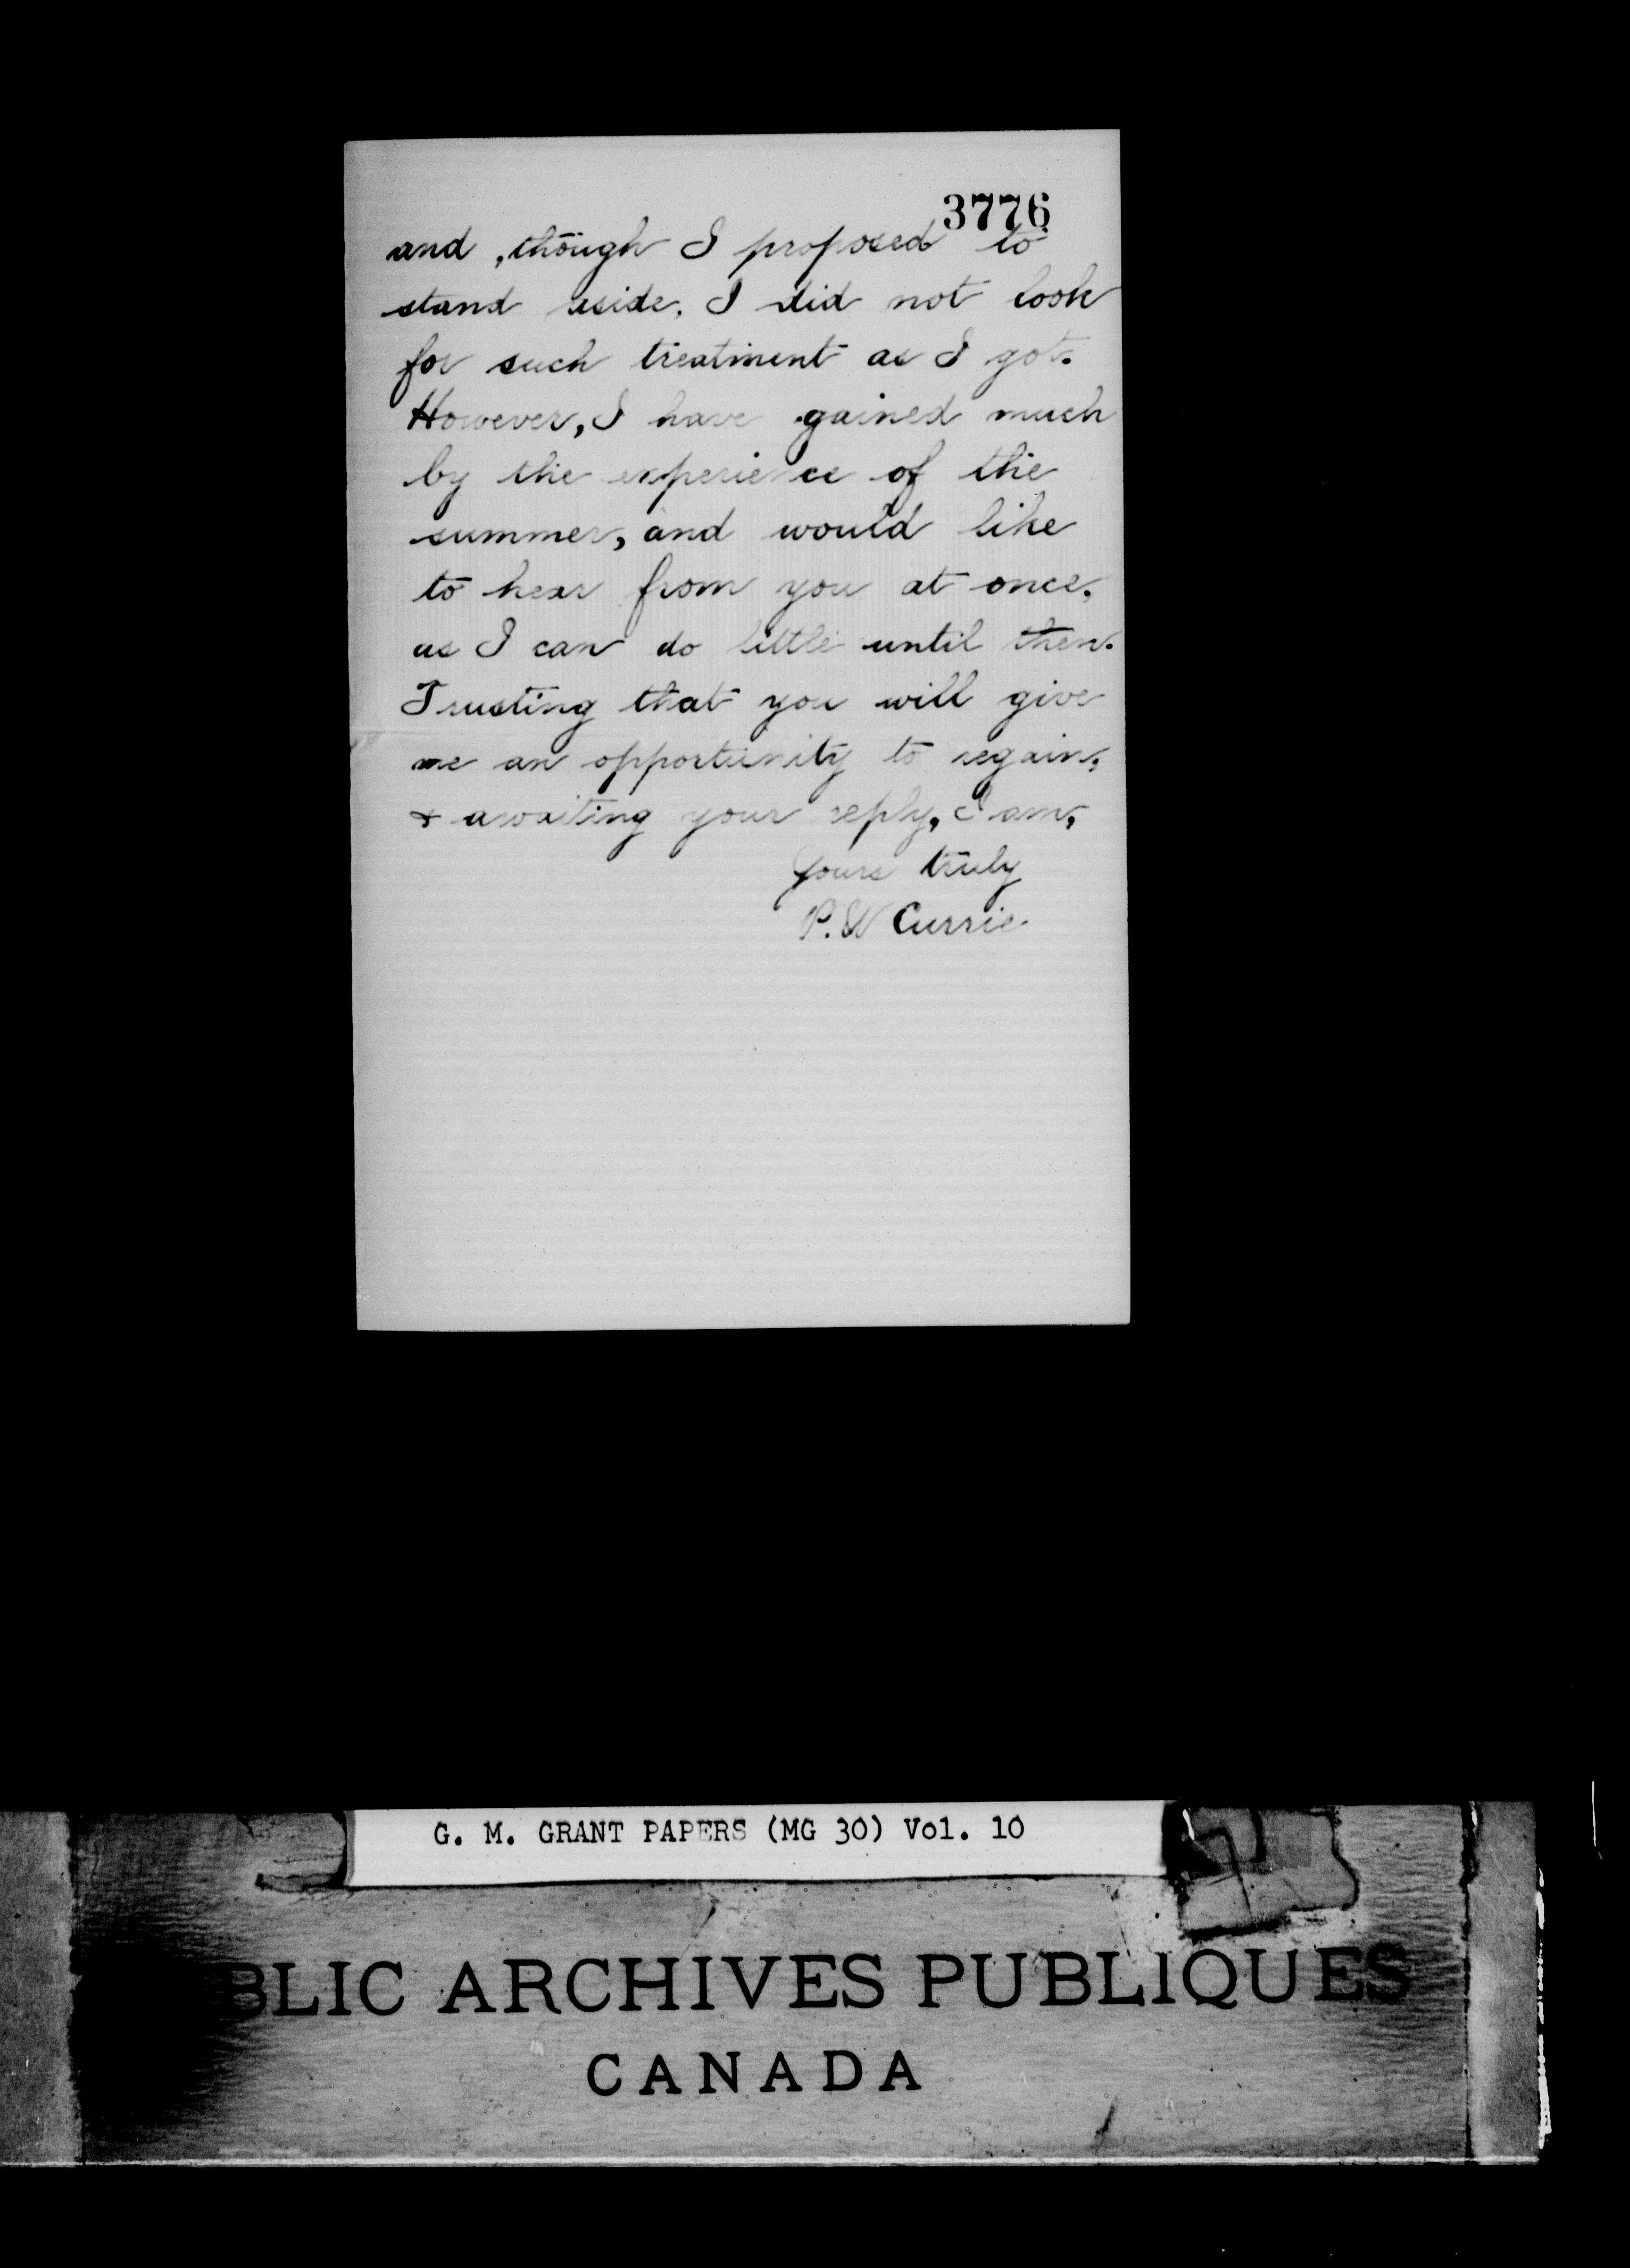 3776
and, though I proposed to
stand aside, I did not look
for such treatment as I got.
However, I have gained much
by the experience of the
summer, and would like
to hear from you at once,
as I can do little until then.
Trusting that you will give
me an opportunity to regain,
& awaiting your reply, I am,
Yours truly
P. W Currie
G. M. GRANT PAPERS (MG 30) Vol. 10
BLIC ARCHIVES PUBLIQUES
CANADA